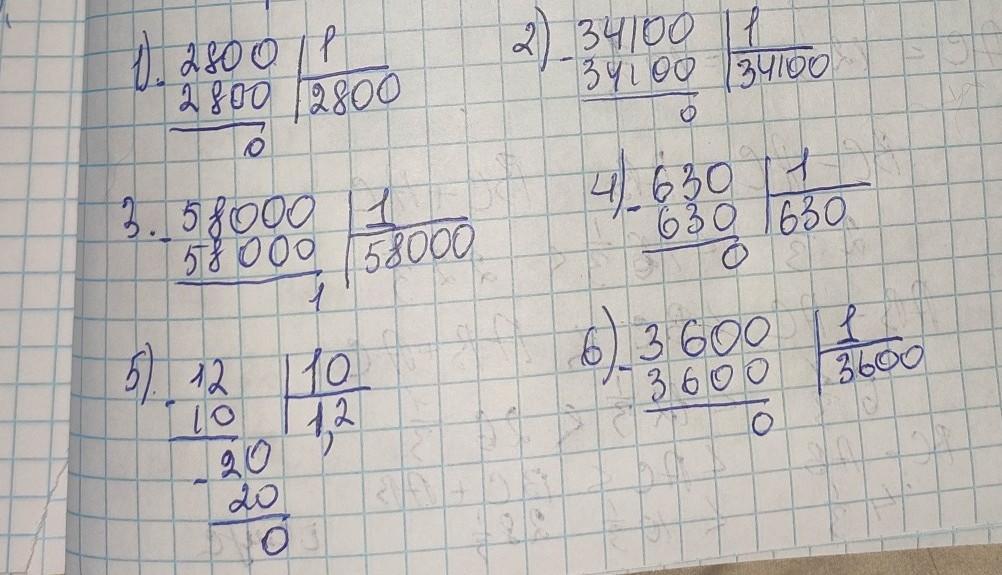 1). - 2800 | 1
2800 | 2800
0
2) - 34100 | 1
34100 | 34100
0
3. - 58000 | 1
58000 | 58000
1
4) - 630 | 1
630 | 630
0
5). - 12 | 10
10 | 1,2
- 20
20
0
6) - 3600 | 1
3600 | 3600
0